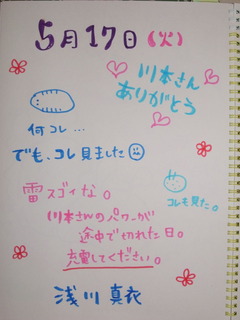 5月17日(火)
川本さん
ありがとう
何コレ…
でも、コレ見ました
雷スゴィな。
コレも見た。
川本さんのパワーが
途中で切れた日。
充電してください。
浅川 真衣